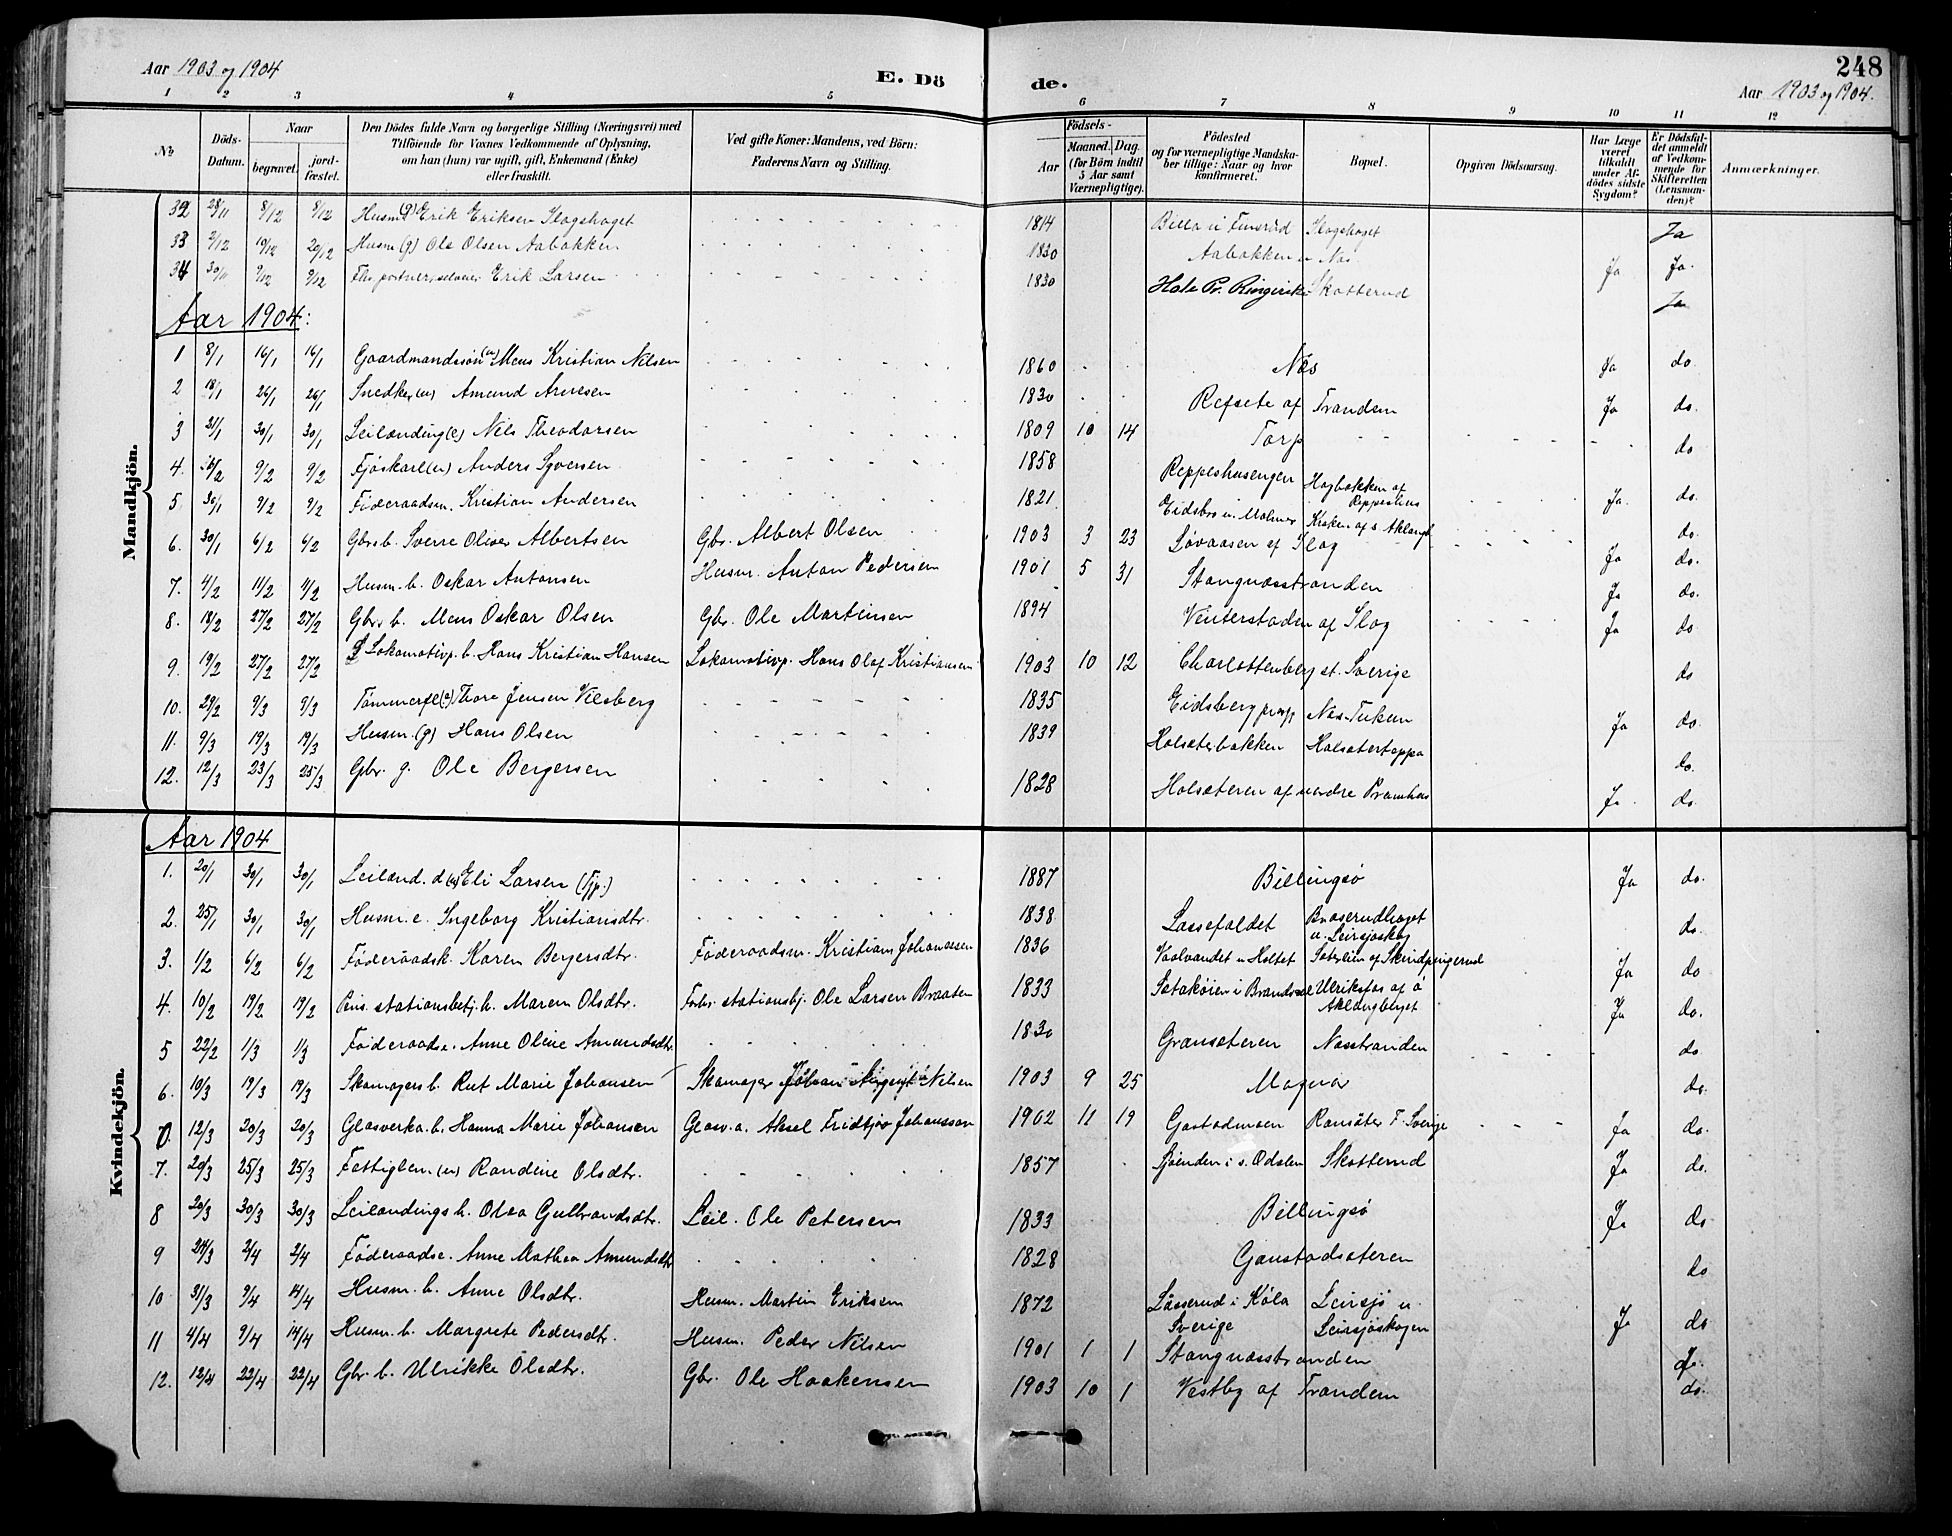 Aar 1903 og 1904
E. Dö
de.
248
Aar 1903 og 1904.
1 2 3 4 5 6 7 8 9 10 11 12
No
Döds-Datum.
Naar
begravet.
jordfæstet.
Den Dödes fulde Navn og borgerlige Stilling (Næringsvei) med
Tilföiende for Voxnes Vedkommende af Oplysning,
om han (hun) var ugift, gift, Enkemand (Enke)
eller fraskilt.
Ved gifte Koner: Mandens, ved Börn:
Faderens Navn og Stilling.
Födsels-
Aar
Maaned. Dag.
(for Börn indtil
5 Aar samt
Værnepligtige).
Födested
og for værnepligtige Mandska-
ber tillige: Naar og hvor
konfirmeret.
Bopæl.
Opgiven Dödsaarsag.
Har Læge
været
tilkaldt
under Af-
dödes sidste
Sygdom?
Er Dödsfal-
det anmeldt
af Vedkom-
mende for
Skifteretten
(Lensman-
den)?
Anmærkninger.
Mandkjön.
32 28/11 8/12 8/12 Husm. (g) Erik Eriksen Slogshaget 1814 Billa i Finsröd Slogshaget Ja
33 2/12 19/12 20/12 Husm (g) Ole Olsen Aabakken 1830 Aabakken u Næs Ja Ja.
34 30/11 9/12 9/12 Erik Larsen 1830 Hole Pr. Ringerike Skotterud Ja
Aar 1904:
1 8/1 16/1 16/1 Gaardmandssön (u) Mens Kristian Nilsen 1860 Næs Ja do.
2 18/1 26/1 26/1 Snedker (u) Amund Arnesen 1830 Refsete af Trandem Ja do.
3 21/1 30/1 30/1 Leilænding (e) Nils Theodorsen 1809 10 14 Torp do
4. 9/2 9/2 Fjöskarl (u) Anders Syversen 1858 Reppeshusengen Hagbakken af Reppeshus Ja. do.
5 30/1 9/2 9/2 Föderaadsm. Kristian Andersen 1821 Eidsbro u. Kroken af s. do.
6. 30/1 6/2 6/2 Gbr. b. Sverre Oliver Albertsen Gbr. Albert Olsen 1903 3 23 Lövaasen af Slog Ja do.
7. 4/2 11/2 11/2 Husm. b. Oskar Antonsen Husm. Anton Pedersen 1901 5 31 Stangnæsstranden Ja do.
8. 18/2 27/2 27/2 Gbr. b. Mens Oskar Olsen Gbr. Ole Martinsen 1894 Vinterstaden af Slog Ja do
9. 19/2 27/2 27/2 Lokomotivp. b. Hans Kristian Hansen Lokomotivp. Hans Olaf Kristiansen 1903 10 12 Charlottenberg st. Sverige do
10. 29/2 9/3 9/3 Tömmerfl (e) Thore Jensen Viesberg 1835 Eidsberg præg Næs-Tuken Ja do.
11. 9/3 19/3 19/3 Husm. (g) Hans Olsen 1839 Holsæterbakken Holsætertoppa do.
12. 12/3 23/3 25/3 Gbr. g. Ole Bergersen 1828 Holsæteren af nordre Pramhus Ja. do.
Kvindekjön.
Aar 1904
1. 20/1 30/1 30/1 Leilænd. d (u) Eli Larsen (Tjp.) 1887 Billingsö Ja do.
2. 25/1 30/1 30/1 Husm. e. Ingeborg Kristiansdtr. 1838 Lassefaldet Braserudhaget u. Leirsjöskog do.
3. 1/2 6/2 6/2 Föderaadsk. Karen Bergersdtr. Föderaadsm. Kristian Johanessen 1836 Vaalvandet u Holtet Sæterlien af Skindpungerud Ja do
4. 10/2 19/2 19/2 Pens. stationsbetj. h. Maren Olsdtr. Forhv. stationsbj. Ole Larsen Braaten 1833 Sætaköien i Brandval Ulriksfos af ö Aklangberget Ja do.
5 22/2 1/3 1/3 Föderaadse. Anne Oline Amundsdtr. 1830 Gransæteren Næsstranden do
6. 10/3 19/3 19/3 Skomagers b. Rut Marie Johansen Skomager Johan August Nilsen 1903 9 25 Magnor do.
12/3 20/3 20/3 Glasverka. b. Hanna Marie Johansen Glasv. a. Aksel Fridtjov Johansson 1902 11 19 Gastadmoen Ransäter F. Sverige Ja do.
7. 20/3 25/3 25/3 Fattiglem. (u) Randine Olsdtr. 1857 Sjöenden i s. Odalen Skotterud Ja do.
8 20/3 30/3 30/3 Leilændings h. Olea Gulbrandsdtr. Leil. Ole Petersen 1833 Billingsö Ja do
9 24/3 2/4 2/4 Föderaadse. Anne Mathea Amundsdtr 1828 Gaustadsæteren do
10 31/3 9/4 14/4 Husm. h. Anne Olsdtr. Husm. Martin Eriksen 1872 Lässerud i Köla Sverige Leirsjö u. Leirsjöskogen Ja do
11 4/4 9/4 14/4 Husm. b. Margrete Pedersdtr. Husm. Peder Nilsen 1901 1 1 Stangnæsstranden do.
12. 12/4 22/4 22/4 Gbr. b. Ulrikke Olsdtr. Gbr. Ole Haakensen 1903 10 1 Vestby af Trandem do.